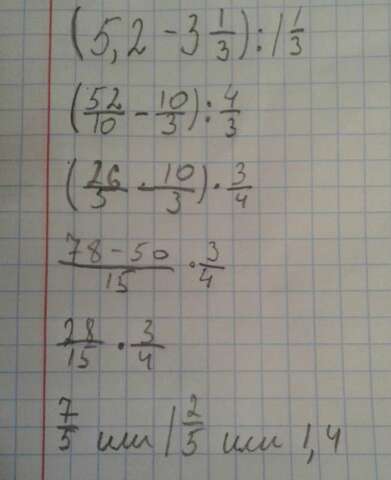 (5,2 - 3 1/3) : 1 1/3
(52/10 - 10/3) : 4/3
(26/5 - 10/3) · 3/4
78 - 50/15 · 3/4
28/15 · 3/4
7/5 или 1 2/5 или 1,4